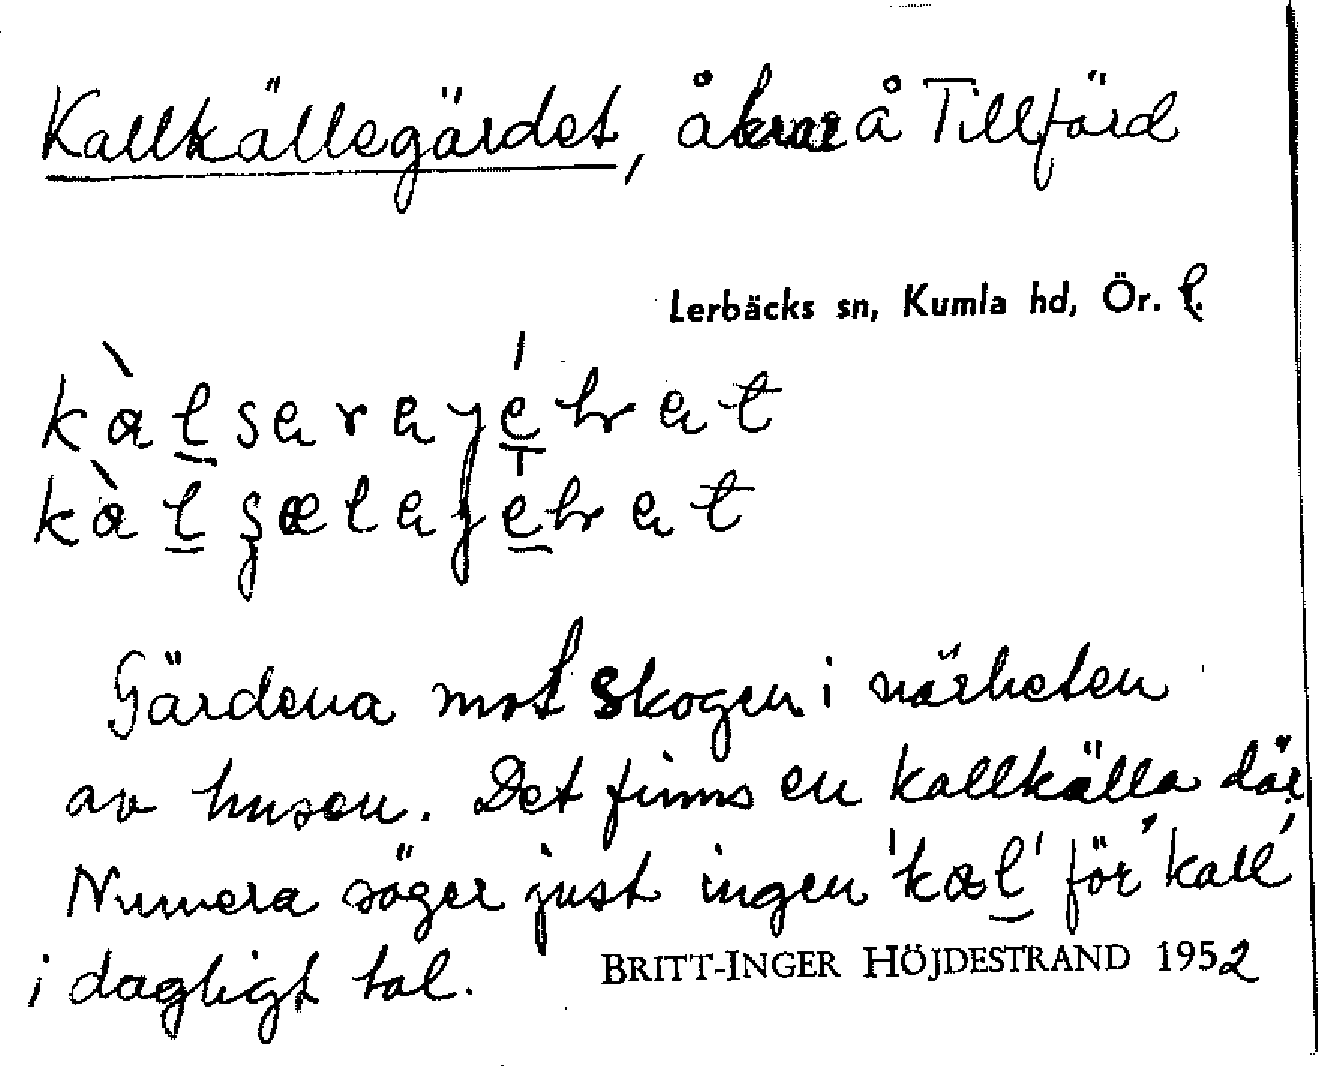 Kallkällegärdet, åkrar å Tillförd
Lerbäcks sn, Kumla hd, Ör. l.
Gärdena mot skogen i närheten
av husen. Det finns en kallkälla där.
Numera säger just ingen 'kal' för 'kall'
i dagligt tal.
BRITT-INGER HÖJDESTRAND 1952